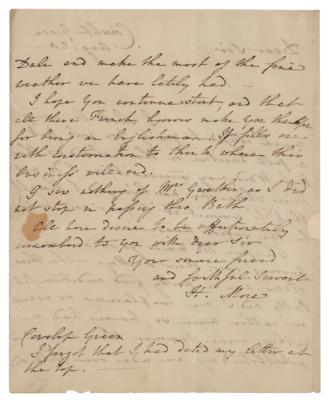 Dale and make the most of the fine
weather we have lately had.
I hope you continue stout, and that
all these French horrors make you thankful
for being an Englishman. It fills one
with consternation to think where this
business will end.
I saw nothing of Mrs as I did
not stop in passing thro Bath.
All here desire to be affectionately
remembered to you with dear Sir
Your sincere friend
and faithful Servant
H. More
Cowslip Green
I forgot that I had dated my letter at
the top.